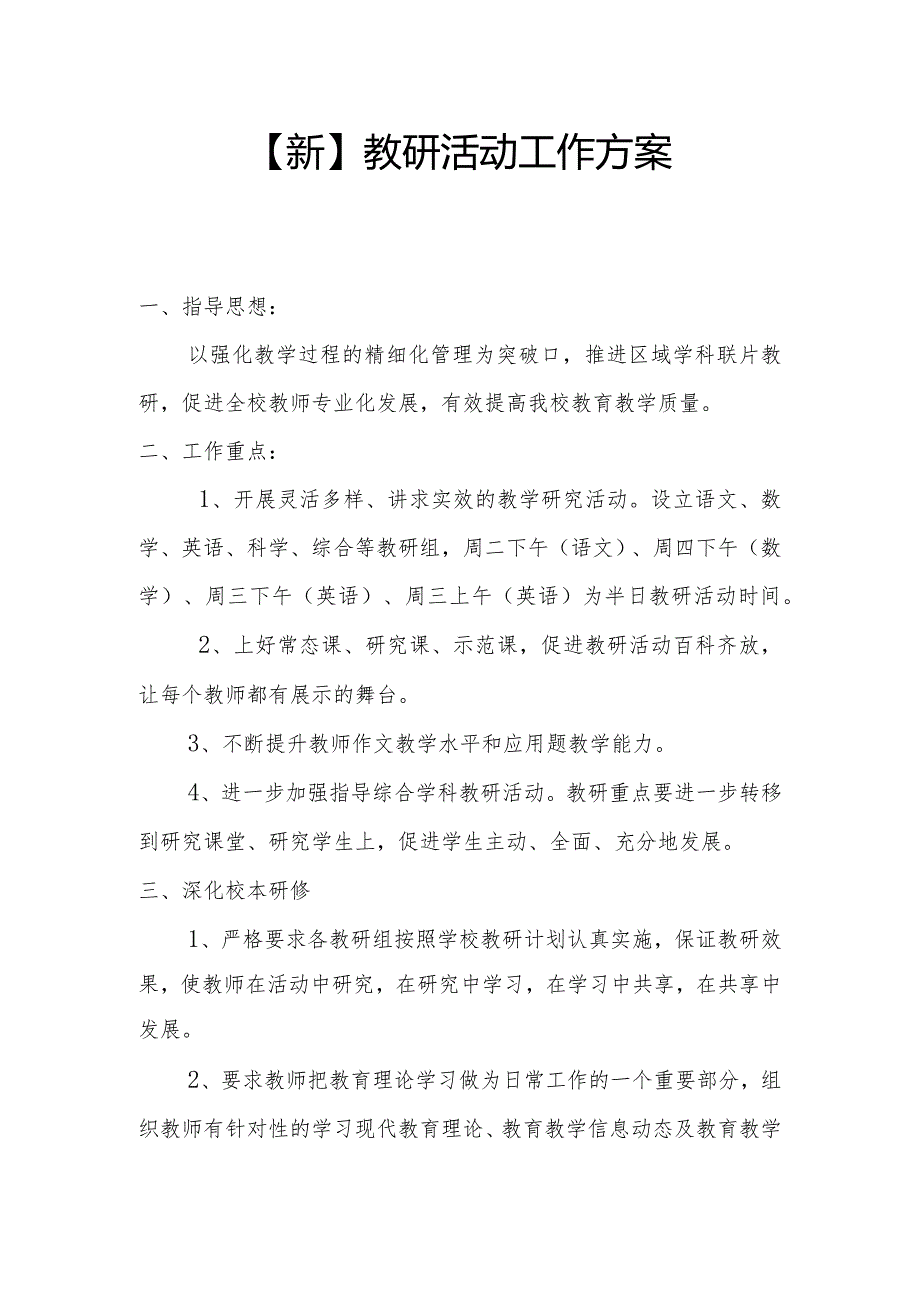 【新】教研活动工作方案
一、指导思想：
以强化教学过程的精细化管理为突破口，推进区域学科联片教
研，促进全校教师专业化发展，有效提高我校教育教学质量。
二、工作重点：
1、开展灵活多样、讲求实效的教学研究活动。设立语文、数
学、英语、科学、综合等教研组，周二下午（语文）、周四下午（数
学）、周三下午（英语）、周三上午（英语）为半日教研活动时间。
2、上好常态课、研究课、示范课，促进教研活动百科齐放，
让每个教师都有展示的舞台。
3、不断提升教师作文教学水平和应用题教学能力。
4、进一步加强指导综合学科教研活动。教研重点要进一步转移
到研究课堂、研究学生上，促进学生主动、全面、充分地发展。
三、深化校本研修
1、严格要求各教研组按照学校教研计划认真实施，保证教研效
果，使教师在活动中研究，在研究中学习，在学习中共享，在共享中
发展。
2、要求教师把教育理论学习做为日常工作的一个重要部分，组
织教师有针对性的学习现代教育理论、教育教学信息动态及教育教学